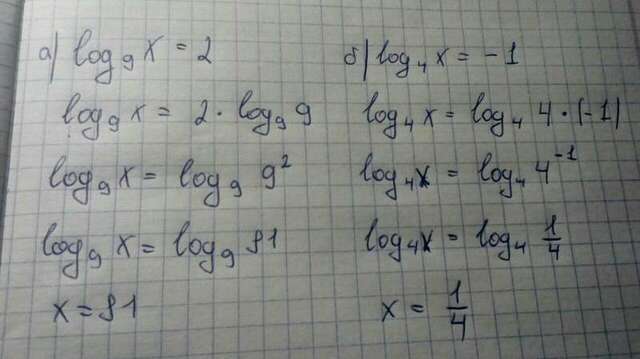 а) log₉ x = 2
log₉ x = 2 · log₉ 9
log₉ x = log₉ 9²
log₉ x = log₉ 81
x = 81
б) log₄ x = -1
log₄ x = log₄ 4 · (-1)
log₄ x = log₄ 4⁻¹
log₄ x = log₄ 1/4
x = 1/4